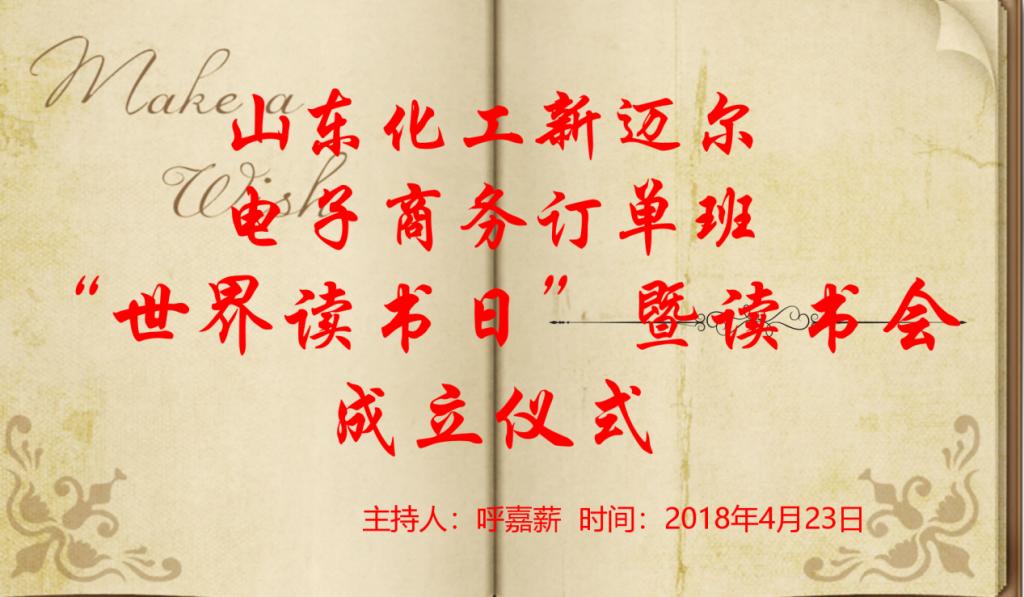 Make a
Wish
山东化工新迈尔
电子商务订单班
“世界读书日”暨读书会
成立仪式
主持人：呼嘉薪 时间：2018年4月23日